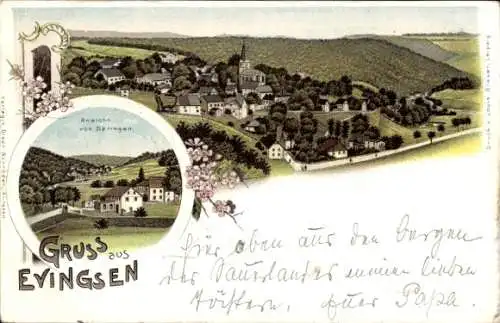 Ansicht
von Deringsen.
GRUSS aus
EVINGSEN
Hier oben aus den Bergen
des Sauerlandes meinen lieben
Töchtern. Euer Papa.